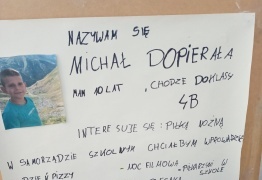 NAZYWAM SIĘ
MICHAŁ DOPIERAŁA
MAM 10 LAT , CHODZĘ DO KLASY
4B
INTERESUJE SIĘ : PIŁKĄ NOŻNĄ
W SAMORZĄDZIE SZKOLNYM CHCIAŁBYM WPROWADZIĆ
DZIEŃ PIZZY - NOC FILMOWA - W
SZKOLE